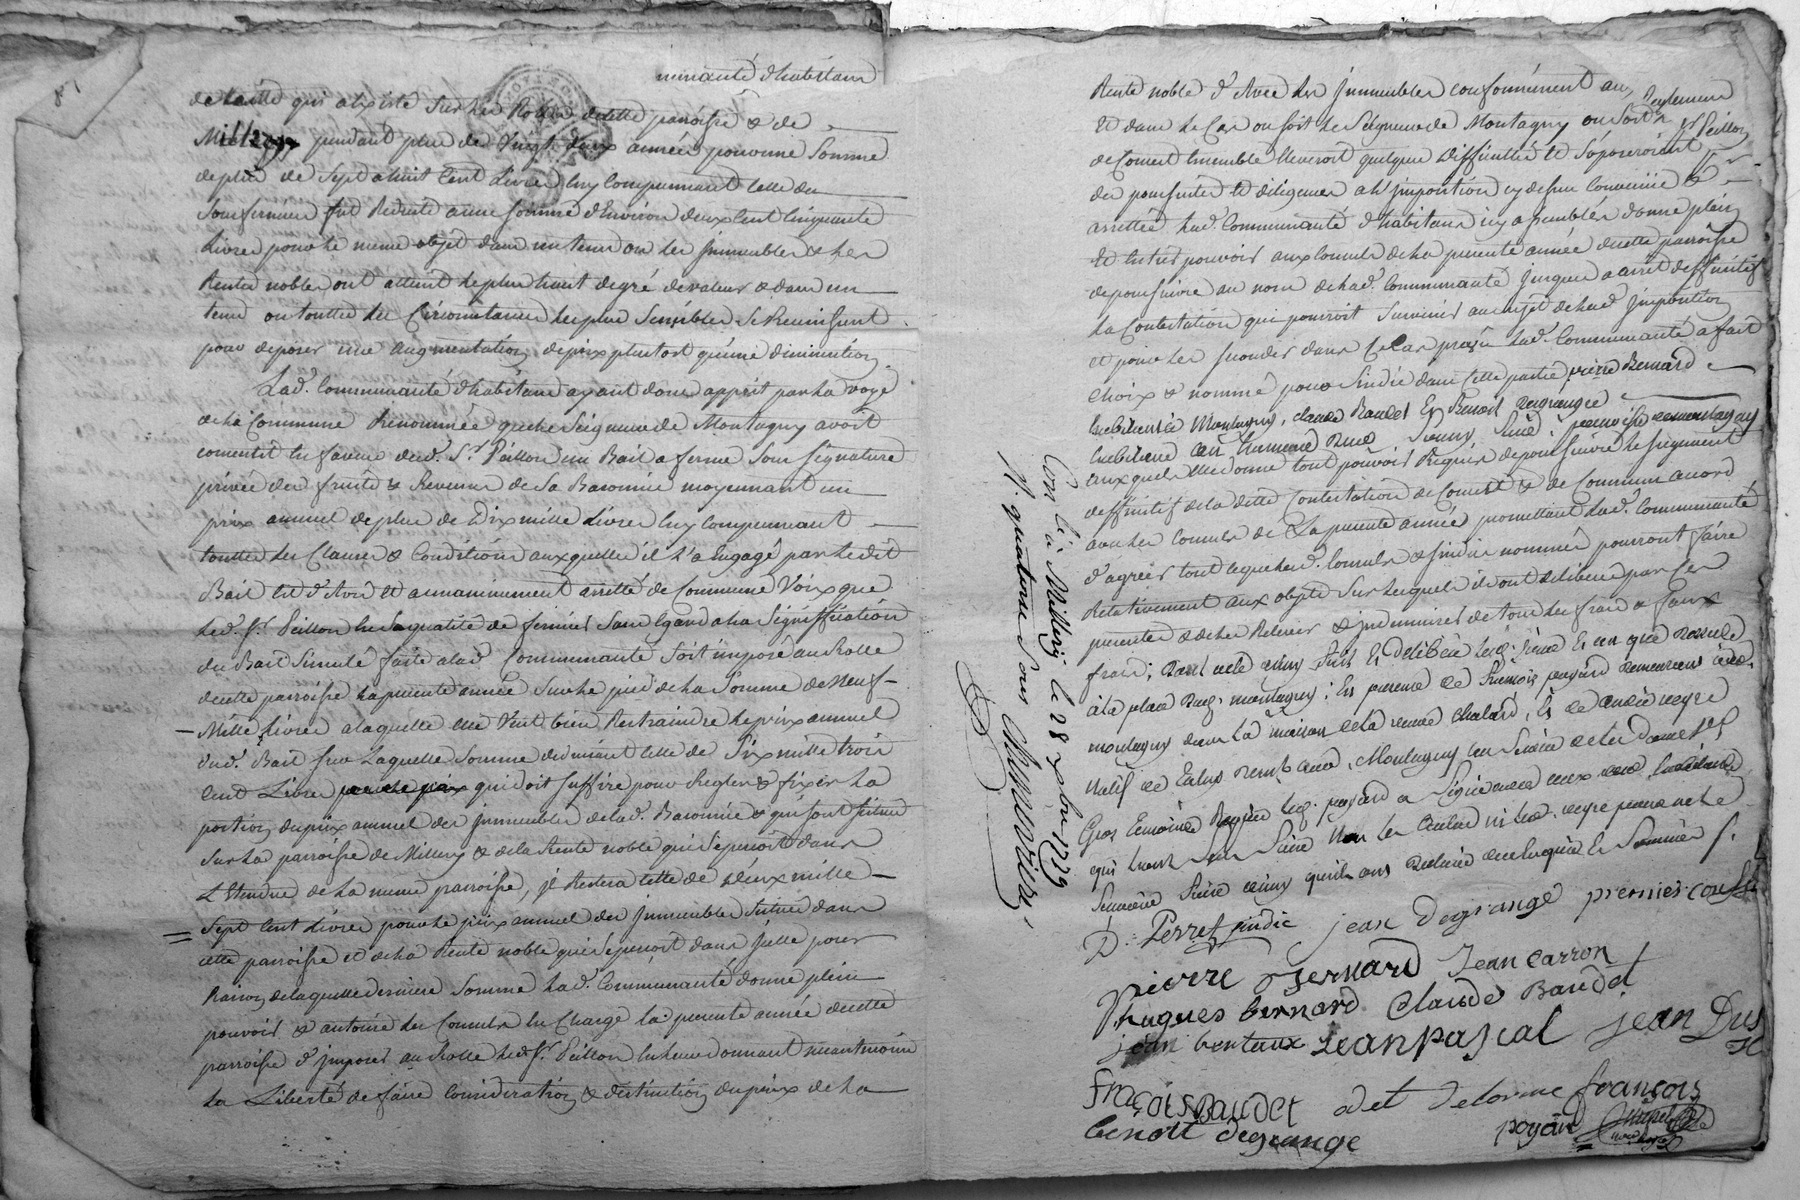 87
munauté d'habitans
de taille qui a existé sur les Rolles de cette parroisse & de
Millery pendant plus de vingt deux années pour une somme
de plus de sept a huit cent Livres en y comprennant celle du
Sousfermier fut Reduite a une somme d'Environ deux cent cinquante
Livres pour le meme objet dans un tems ou les Immeubles & les
Rentes nobles ont atteint le plus haut degré de valeur & dans un
tems ou touttes les Circonstances les plus sensibles se Reunissent
pour deposer une augmentation de prix plustost qu'une diminution
Lad. Communauté d'habitans ayant donc appris par la voye
de la Commune Renommée que le Seigneur de Montagny avoit
consentit en faveur dud. Sr. Peillon un Bail a ferme sous signature
privée des fruits & Revenus de sa Baronnie moyennant un
prix annuel de plus de dix mille Livres en y comprennant
touttes les Clauses & Conditions auxquelles il s'a Engagé par le dit
Bail est d'Avis et a unanimement arretté de Commune Voix que
led. Sr. Peillon en sa qualité de fermier sans Egard a la Signiffication
du Bail simulé faite a lad. Communauté soit imposé au Rolle
de cette parroisse la presente année sur le pied de la somme de Neuf
Mille Livres a laquelle elle veut bien Restraindre le prix annuel
dud. Bail sur Laquelle somme deduisant celle de Six mille trois
Cent Livres qui doit suffire pour Regler & fixer la
portion du prix annuel des Immeubles de lad. Baronnie qui sont situés
sur la parroisse de Millery & de la Rente noble qui se perçoit dans
L'Etendue de la meme parroisse, il Restera celle de deux mille
Sept Cent Livres pour le prix annuel des Immeubles situés dans
cette parroisse et de la Rente noble qui se perçoit dans Icelle pour
Raison de laquelle derniere somme lad. Communauté donne plein
pouvoir & autorise les Consuls en Charge la presente année de cette
parroisse d'imposer au Rolle led. Sr. Peillon en leur donnant neantmoins
la Liberté de faire consideration & distinction du prix de la
Rente noble d'Avec les Immeubles conformément aux Reglemens
Et dans le Cas ou soit le Seigneur de Montagny ou soit le Sr. Peillon
de Concert Ensemble Eleveroit quelque difficultés Et s'oposeroient
des poursuites Et diligences a l'Imposition cy dessus convenüe &
arrettée lad. Communauté d'habitans icy assemblés donne plein
Et Entier pouvoir aux Consuls de la presente année de cette parroisse
de poursuivre au nom de lad. Communauté jusques a arret deffinitif
la Contestation qui pourroit survenir au sujet de lad. Imposition
et pour les seconder dans ce Cas prevu lad. Communauté a fait
choix & nommé pour Sindic dans Cette partie pierre Bernard
habitant a Montagny, claude Baudet Et Benoit degrange
auxquels elle donne tout pouvoir Requis de poursuivre le Jugement
deffinitif de la ditte Contestation de Concert & de Commun accord
avec les Consuls de La presente année promettant lad. Communauté
d'agréer tout ce que lesd. Consuls & sindics nommés pourront faire
Relativement aux objets sur lesquels ils ont deliberé par Ces
presentes & de les Relever & indemniser de tous les frais & faux
frais;
Con.lé à Millery le 28 xbre 1759
R. quatorze sols
D. Perret sindic
jean degrange premier consul
pierre Bernard
Jean carron
hugues bernard
Claude Baudet
jean bentaux
Jean Pascal
jean Dus
françois Baudet
odet Delorme
françois
payard
benoit degrange